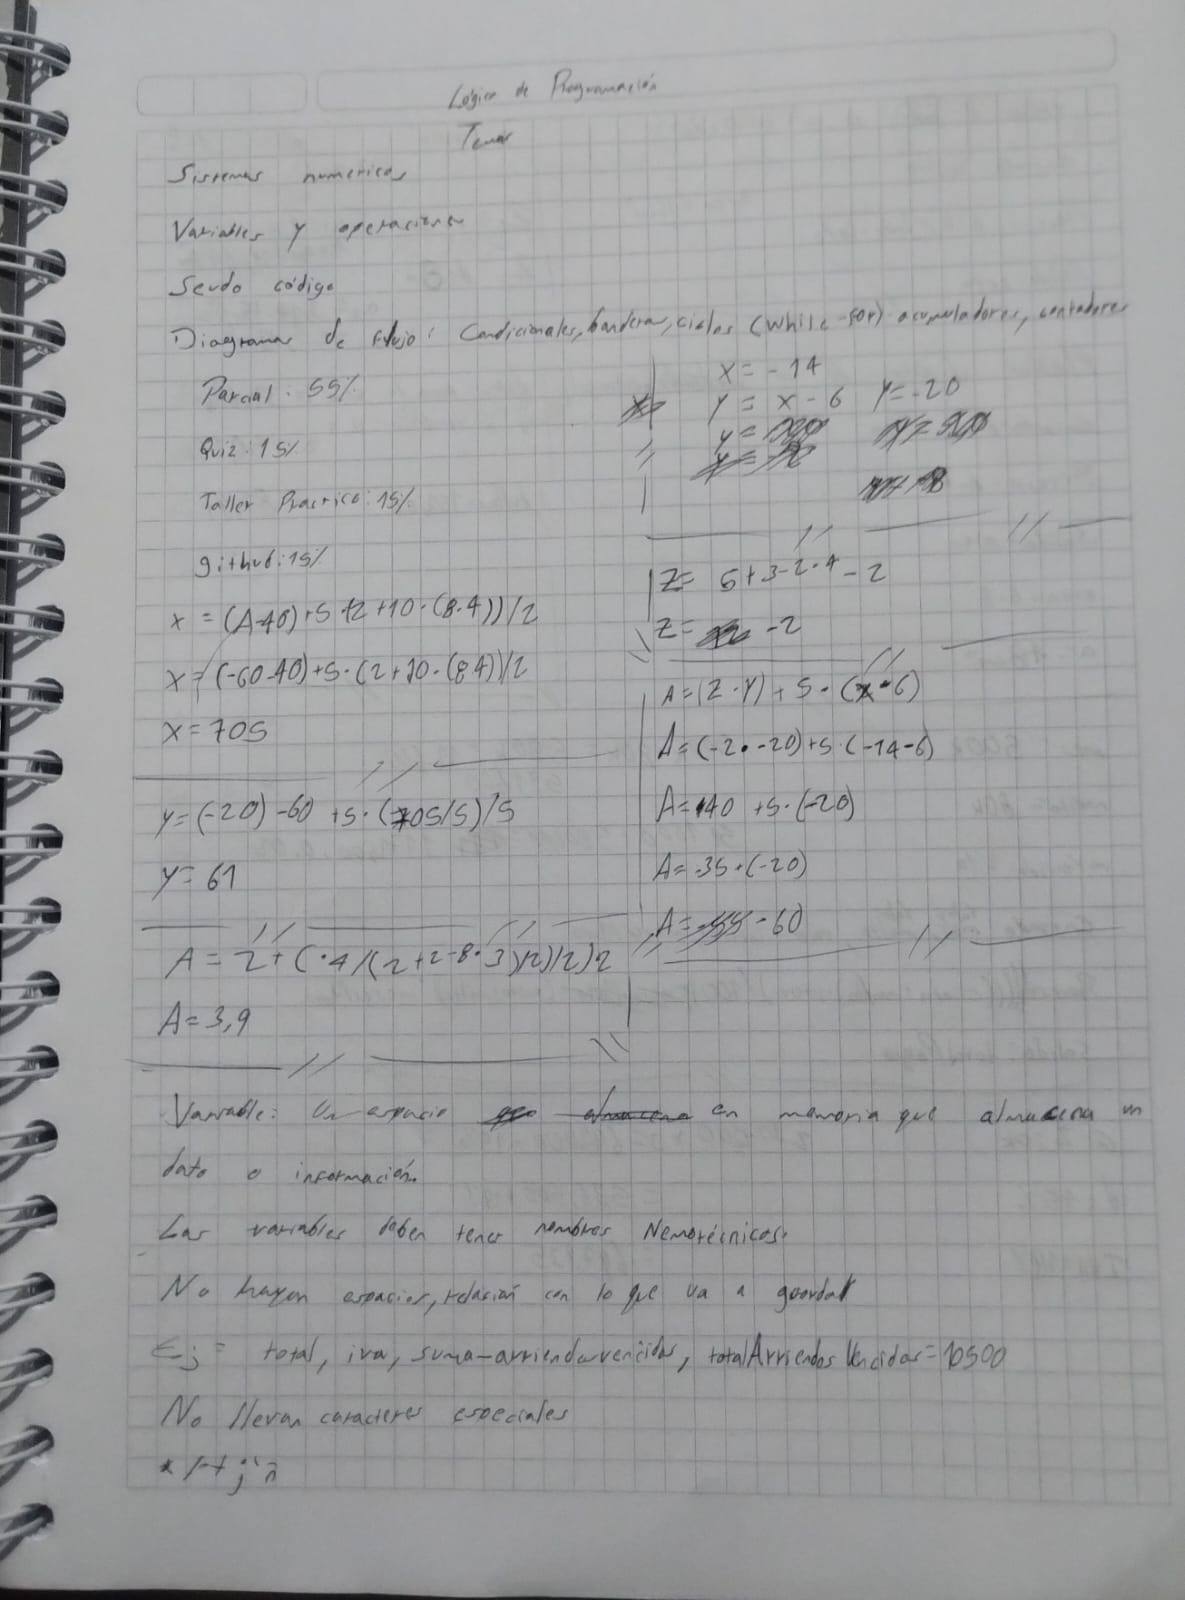 Lógica de Programación
Temas
Sistemas numericos
Variables y operaciones
Seudo código
Diagramas de flujo: Condicionales, banderas, ciclos (while-for) acumuladores, contadores
Parcial: 55%
Quiz: 15%
Taller Practico: 15%
github: 15%
x = (A-40)+5+2+10·(8·4))/2
x = (-60-40)+5·(2+10·(8·4))/2
x = 705
y = (-20)-60+5·(705/5)/5
y = 61
A = 2+(·4/(2+2-8·3)/2)/2)2
A = 3,9
x = -14
y = x - 6 y = -20
Z = 5+3-2·4-2
Z = -2
A = (Z·Y)+5·(x-6)
A = (-2·-20)+5·(-14-6)
A = 40 +5·(-20)
A = 35·(-20)
A = -60
Variable: Un espacio en memoria que almacena un
dato o información.
Las variables deben tener nombres Nemotécnicos.
No hayan espacios, relación con lo que va a guardar
Ej = total, iva, suma-arriendosvencidos, totalArriendosVencidos=10500
No llevan caracteres especiales